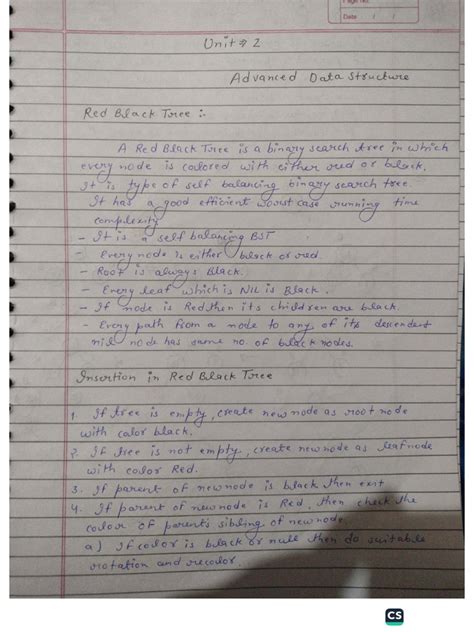 Page No.
Date / /
Unit → 2
Advanced Data Structure
Red Black Tree :-
A Red Black Tree is a binary search tree in which
every node is colored with either red or black.
It is type of self balancing binary search tree.
It has a good efficient worst case running time
complexity
- It is a self balancing BST
- Every node is either black or red.
- Root is always Black.
- Every leaf which is NIL is Black.
- If node is Red then its children are black.
- Every path from a node to any of its descendent
nil node has same no. of black nodes.
Insertion in Red Black Tree
1. If tree is empty, create new node as root node
with color black.
2. If tree is not empty, create new node as leaf node
with color Red.
3. If parent of new node is black then exit
4. If parent of new node is Red, then check the
color of parent's sibling of new node.
a) If color is black or null then do suitable
rotation and recolor.
CS